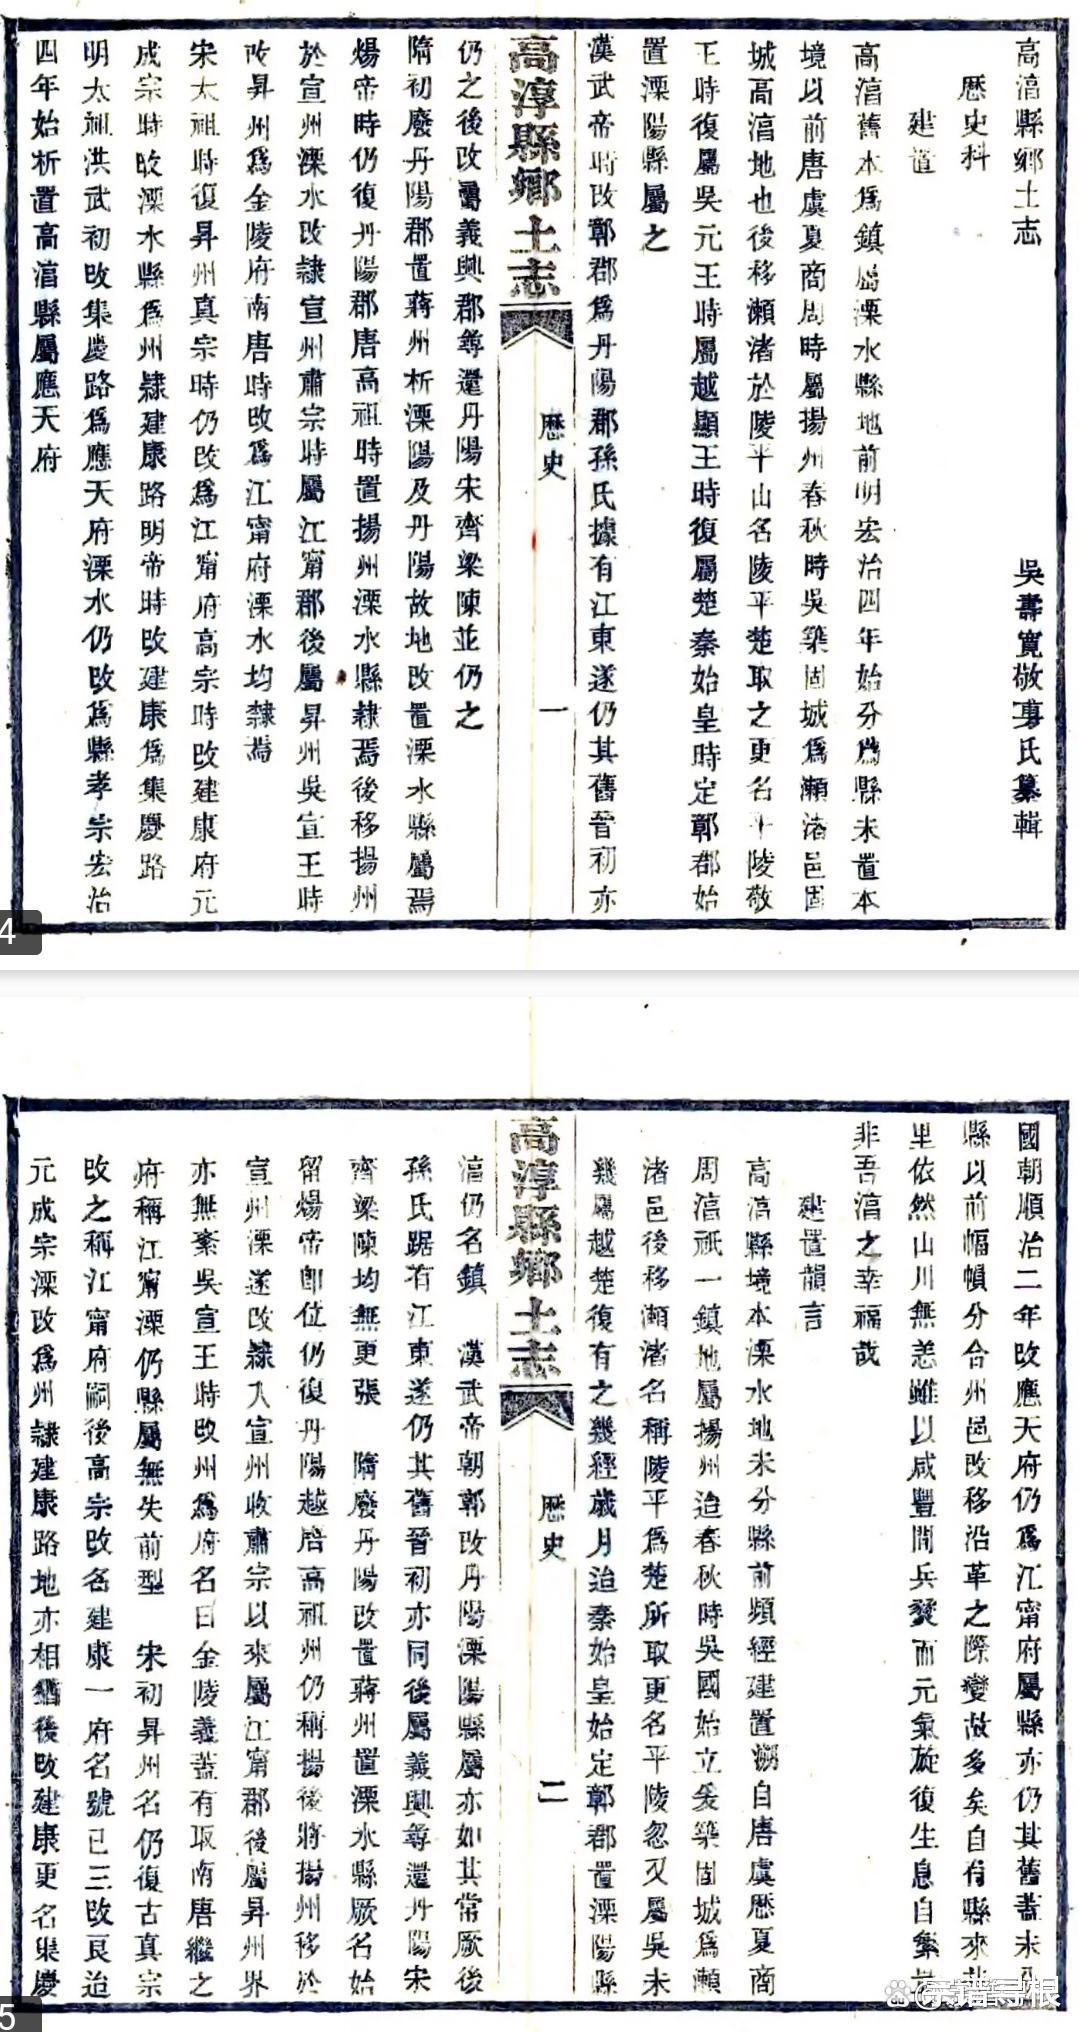 高湻縣鄉土志 吳壽寬敬氏纂輯
歷史科
建置
高湻舊本爲鎮屬溧水縣地前明宏治四年始分爲縣未置本
境以前唐虞夏商周時屬揚州春秋時吳築固城爲瀨渚邑固
城高湻地也後移瀨渚於陵平山名陵平楚取之更名平陵敬
王時復屬吳元王時屬越顯王時復屬楚秦始皇時定鄣郡始
置溧陽縣屬之
漢武帝時改鄣郡爲丹陽郡孫氏據有江東遂仍其舊晉初亦
高淳縣鄉土志 歷史 一
仍之後改屬義興郡尋還丹陽宋齊梁陳並仍之
隋初廢丹陽郡置蔣州析溧陽及丹陽故地改置溧水縣屬焉
煬帝時仍復丹陽郡唐高祖時置揚州溧水縣隸焉後移揚州
於宣州溧水改隸宣州肅宗時屬江甯郡後屬昇州吳宣王時
改昇州爲金陵府南唐時改爲江甯府溧水均隸焉
宋太祖時復昇州真宗時仍改爲江甯府高宗時改建康府元
成宗時改溧水縣爲州隸建康路明帝時改建康爲集慶路
明太祖洪武初改集慶路爲應天府溧水仍改爲縣孝宗宏治
四年始析置高湻縣屬應天府
4
國朝順治二年改應天府仍爲江甯府屬縣亦仍其舊蓋未分
縣以前幅幀分合州邑改移沿革之際變故多矣自有縣來井
里依然山川無恙雖以咸豐間兵燹而元氣旋復生息自繁豈
非吾湻之幸福哉
建置韻言
高湻縣境本溧水地未分縣前頻經建置溯自唐虞歷夏商
周湻祇一鎮地屬揚州迨春秋時吳國始立爰築固城爲瀨
渚邑後移瀨渚名稱陵平爲楚所取更名平陵忽又屬吳未
幾屬越楚復有之幾經歲月迨秦始皇始定鄣郡置溧陽縣
高淳縣鄉土志 歷史 二
湻仍名鎮 漢武帝朝鄣改丹陽溧陽縣屬亦如其常厥後
孫氏踞有江東遂仍其舊晉初亦同後屬義興尋還丹陽宋
齊梁陳均無更張 隋廢丹陽改置蔣州置溧水縣厥名始
留煬帝即位仍復丹陽越唐高祖州仍稱揚後將揚州移於
宣州溧遂改隸入宣州收肅宗以來屬江甯郡後屬昇州界
亦無紊吳宣王時改州爲府名曰金陵義蓋有取南唐繼之
府稱江甯溧仍縣屬無失前型 宋初昇州名仍復古真宗
改之稱江甯府嗣後高宗改名建康一府名號已三改良迨
元成宗溧改爲州隸建康路地亦相猶後改建康更名集慶
5
宗谱寻根